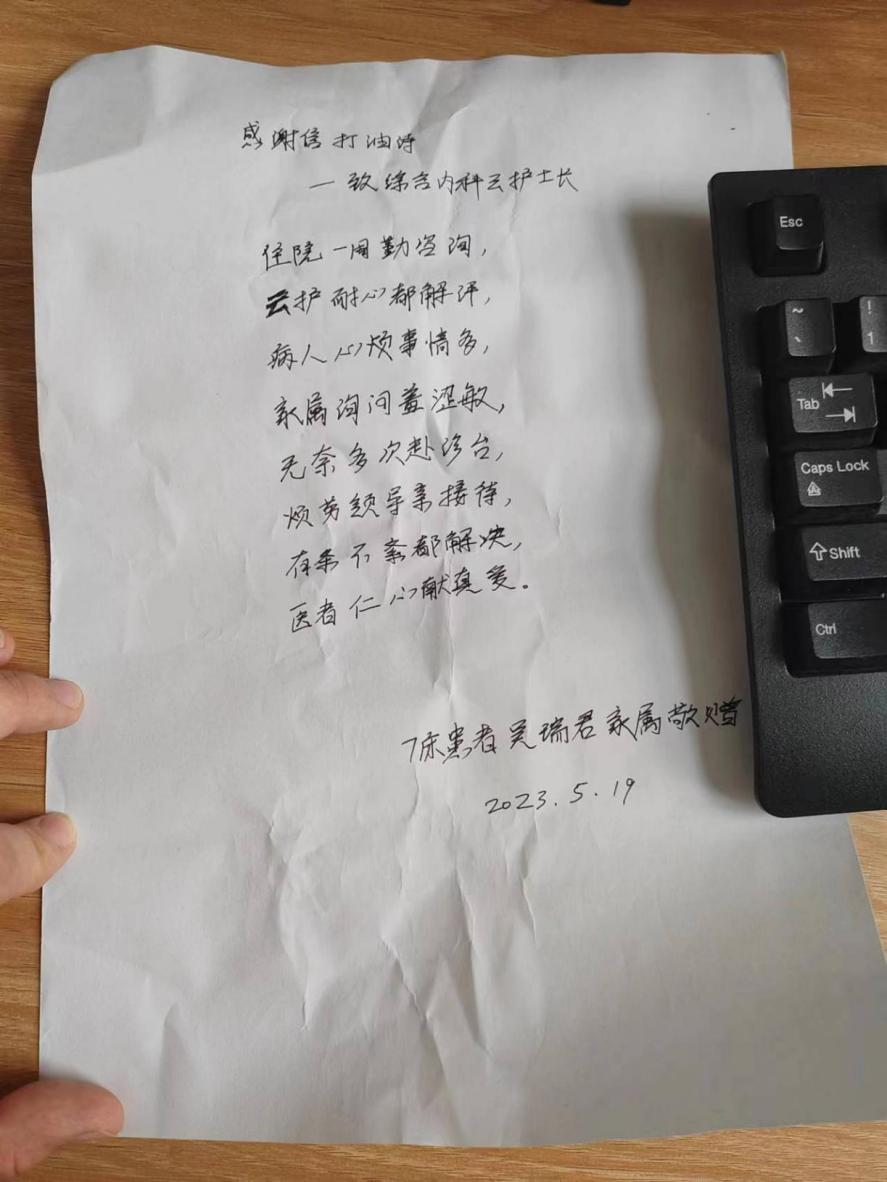 感谢信打油诗
—致综合内科云护士长
住院一周勤咨询，
云护耐心都解评，
病人心烦事情多，
家属询问羞涩敏，
无奈多次赴诊台，
烦劳领导亲接待，
有条不紊都解决，
医者仁心献真爱。
7床患者吴瑞君家属敬赠
2023.5.19
Esc
~
、
!
1
Tab
Caps Lock
Shift
Ctrl